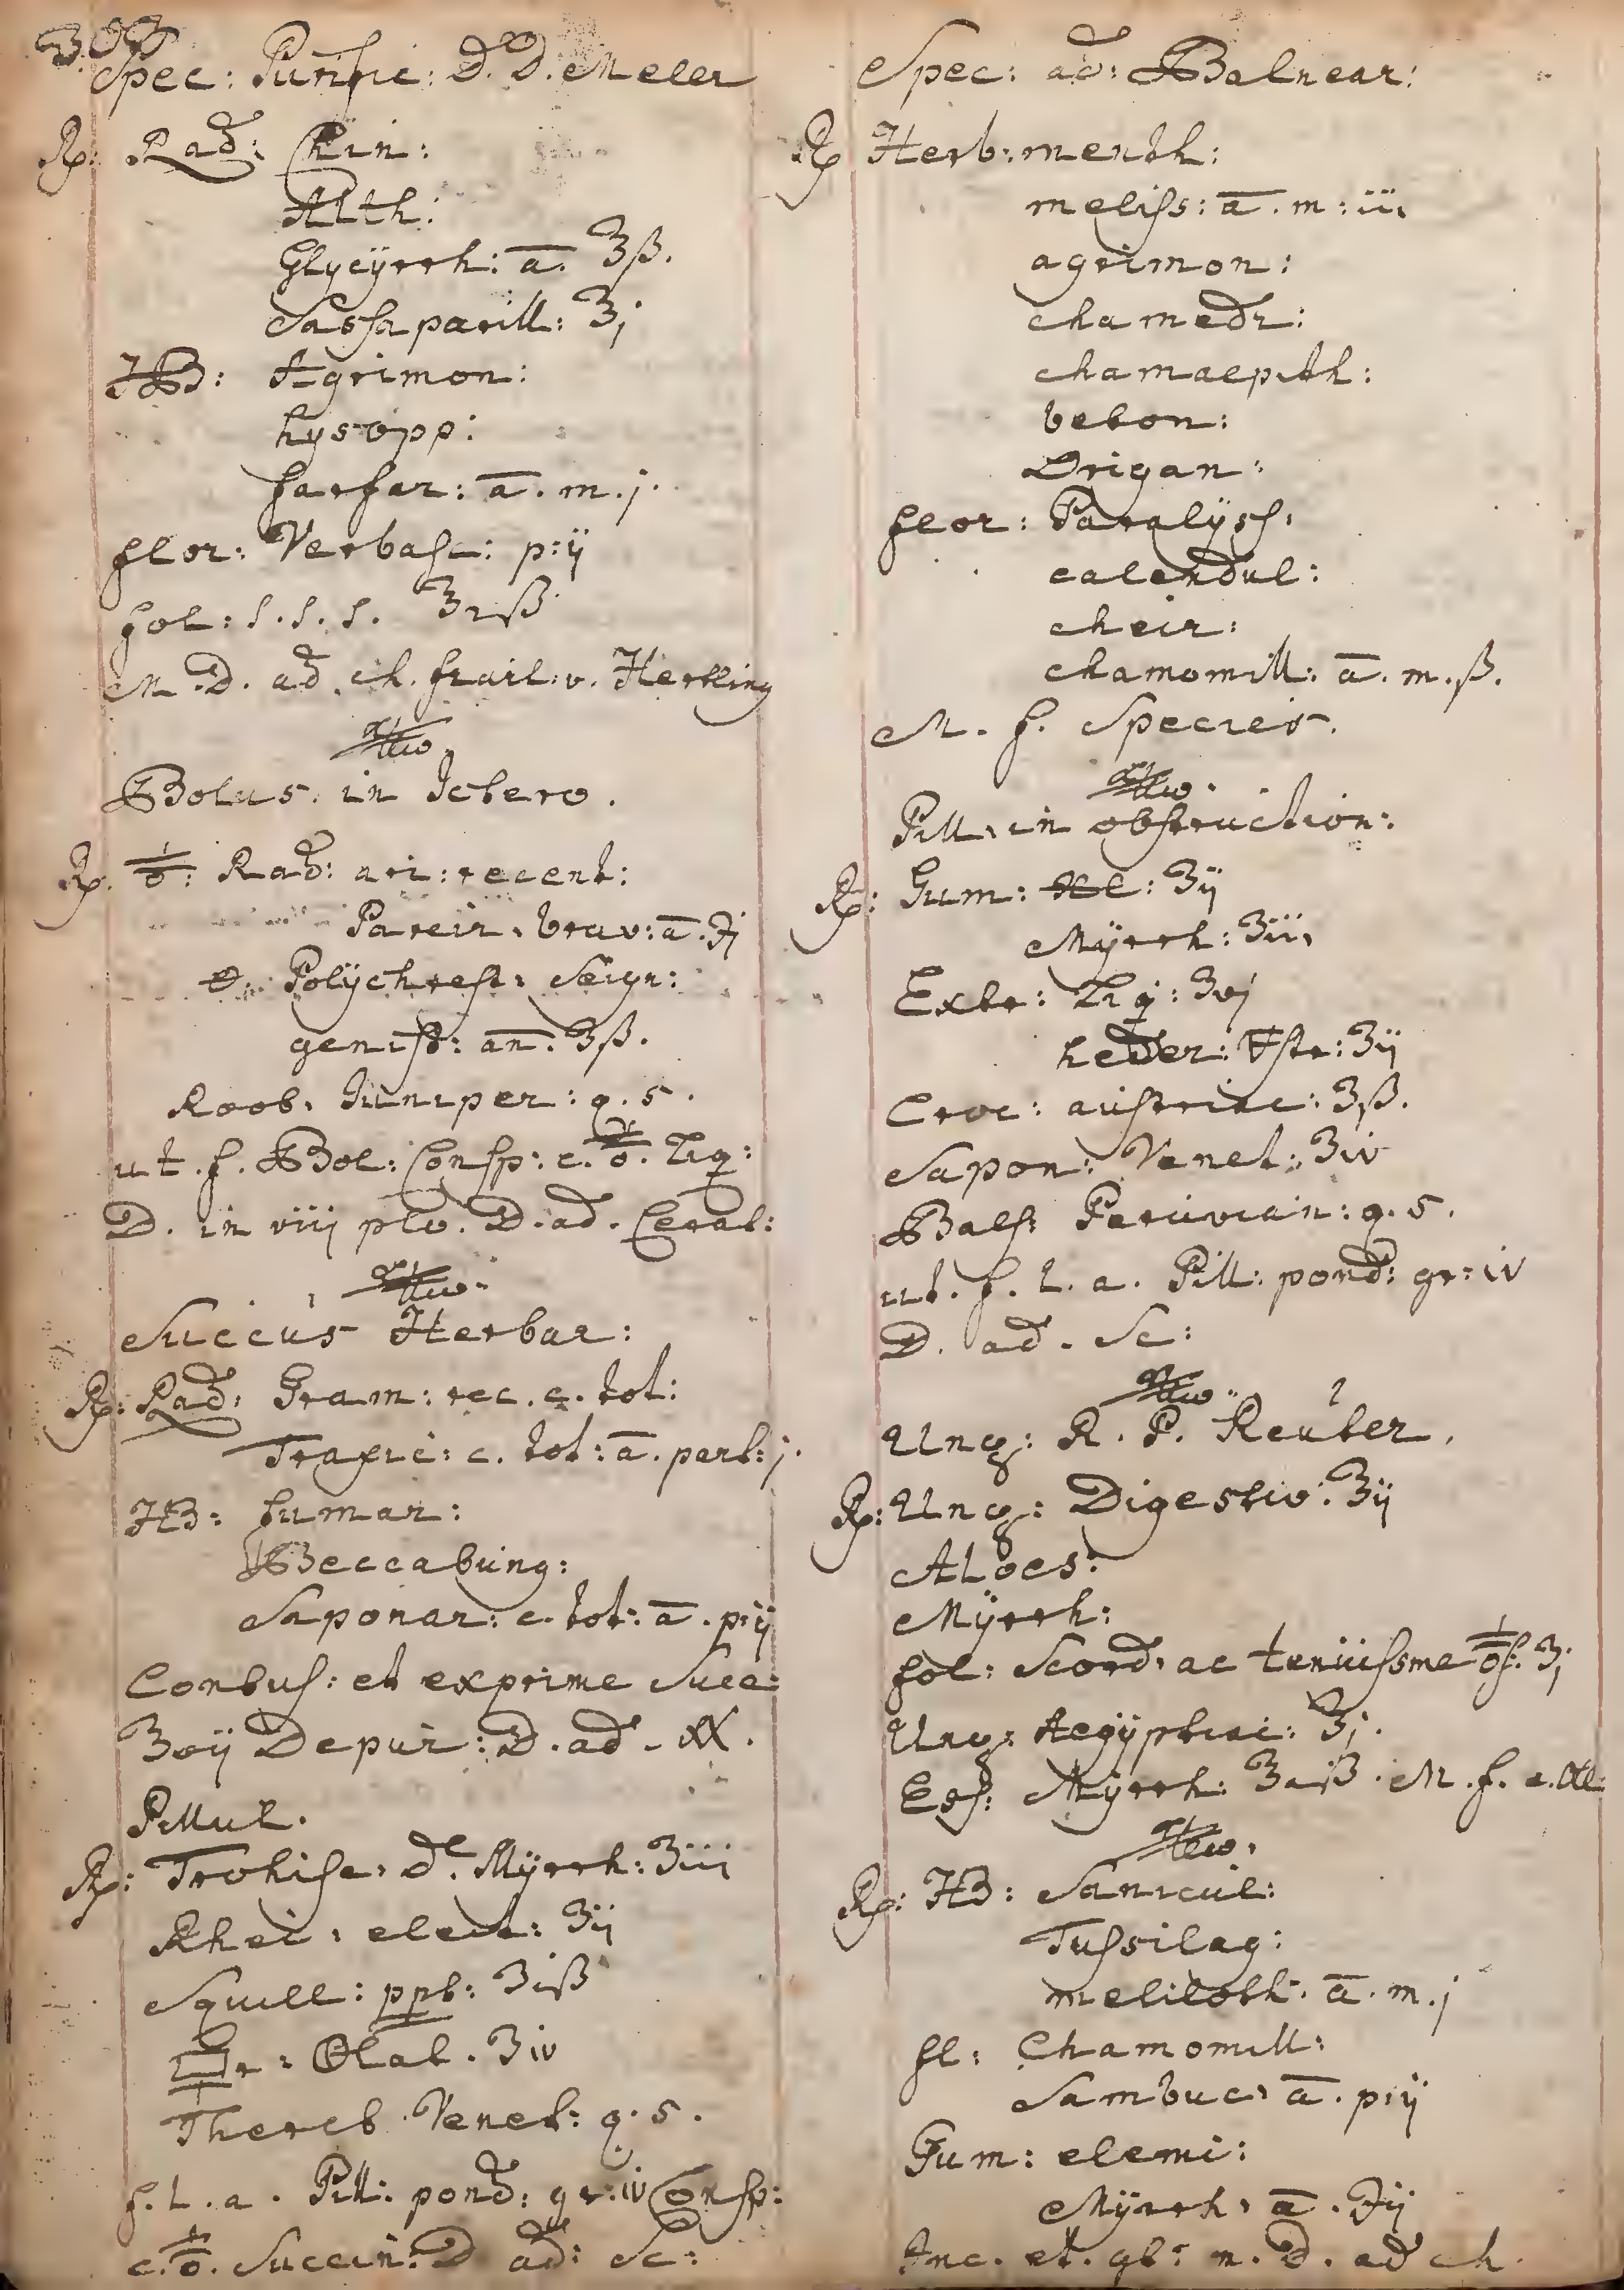 303
Spec: Purific: D. D. Meller
Rp: Rad: Chin:
Alth:
Glycÿrrh: ā. ʒß.
Sassaparill: ʒj
HB: Agrimon:
hysopp:
farfar: ā. m. j.
flor: Verbasc: p: ij
fol: s. s. s. ʒiß
M. D. ad ch. frail: v. Hertling
Bolus in Ictero.
Rp. Rad: ari: recent:
Pareir. brav: ā. ℈j
Polÿchrest: Seign:
genist: an: ʒß.
Roob. Juniper: q. s.
ut. f. Bol: Consp: c. Liq:
D. in viij plv. D. ad. Cerat:
Succus Herbar:
Rp: Rad: Gram: rec. c. tot:
Taraxic: c. tot: ā. part: j.
HB: fumar:
Beccabung:
Saponar: c. tot: ā. p: ij
Contus: et exprime Succ:
ʒvij Depur: D. ad.
Pillul.
Rp: Trohisc. de Mÿrrh: ʒiii
Rhei. elect: ʒij
Squill: ppt: ʒiß
ʒiv
Thereb. Venet: q. s.
f. l. a. Pill: pond: gr: iv Consp:
c. Succin: D ad: Sc:
Spec: ad: Balnear:
Rp Herb: menth:
meliss: ā. m: iii
agrimon:
chamedr:
chamaepith:
beton:
Origan:
flor: Paralÿs:
calendul:
cheir:
chamomill: ā. m. ß.
M. f. Species.
Pill. in obstruction:
Rp: Gum: ʒij
Mÿrrh: ʒiii
Extr: Liq: ʒvj
heder: ʒij
Croc: austriac: ʒß.
Sapon: Venet: ʒiv
Bals: Peruvian: q. s.
ut. f. l. a. Pill: pond: gr: iv
D. ad. Sc:
Ung: R. P. Reuter.
Rp: Ung: Digestiv: ʒij
Aloes:
Mÿrrh:
fol: Scord. ac tenuissme ʒj
Ung: Aegÿptiac: ʒj.
Ess: Mÿrrh: ʒiß. M. f.
Rp: HB: Sanicul:
Tussilag:
meliloth: ā. m. j
fl: Chamomill:
Sambuc. ā. p: ij
Gum: elemi:
Mÿrrh. ā. ℈ij
Inc. et. gr: m. D. ad ch.